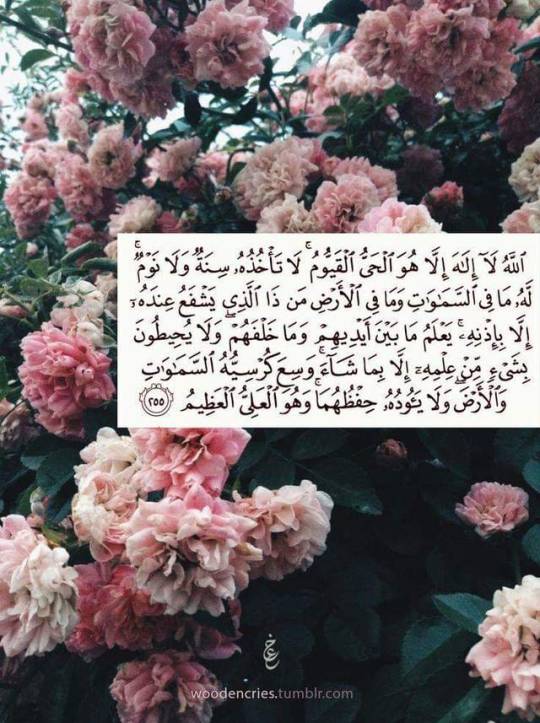 ٱللَّهُ لَآ إِلَٰهَ إِلَّا هُوَ ٱلْحَىُّ ٱلْقَيُّومُ ۚ لَا تَأْخُذُهُۥ سِنَةٌ وَلَا نَوْمٌ ۚ
لَّهُۥ مَا فِى ٱلسَّمَٰوَٰتِ وَمَا فِى ٱلْأَرْضِ ۗ مَن ذَا ٱلَّذِى يَشْفَعُ عِندَهُۥٓ
إِلَّا بِإِذْنِهِۦ ۚ يَعْلَمُ مَا بَيْنَ أَيْدِيهِمْ وَمَا خَلْفَهُمْ ۖ وَلَا يُحِيطُونَ
بِشَىْءٍ مِّنْ عِلْمِهِۦٓ إِلَّا بِمَا شَآءَ ۚ وَسِعَ كُرْسِيُّهُ ٱلسَّمَٰوَٰتِ
وَٱلْأَرْضَ ۖ وَلَا يَـُٔودُهُۥ حِفْظُهُمَا ۚ وَهُوَ ٱلْعَلِىُّ ٱلْعَظِيمُ ٢٥٥
woodencries.tumblr.com